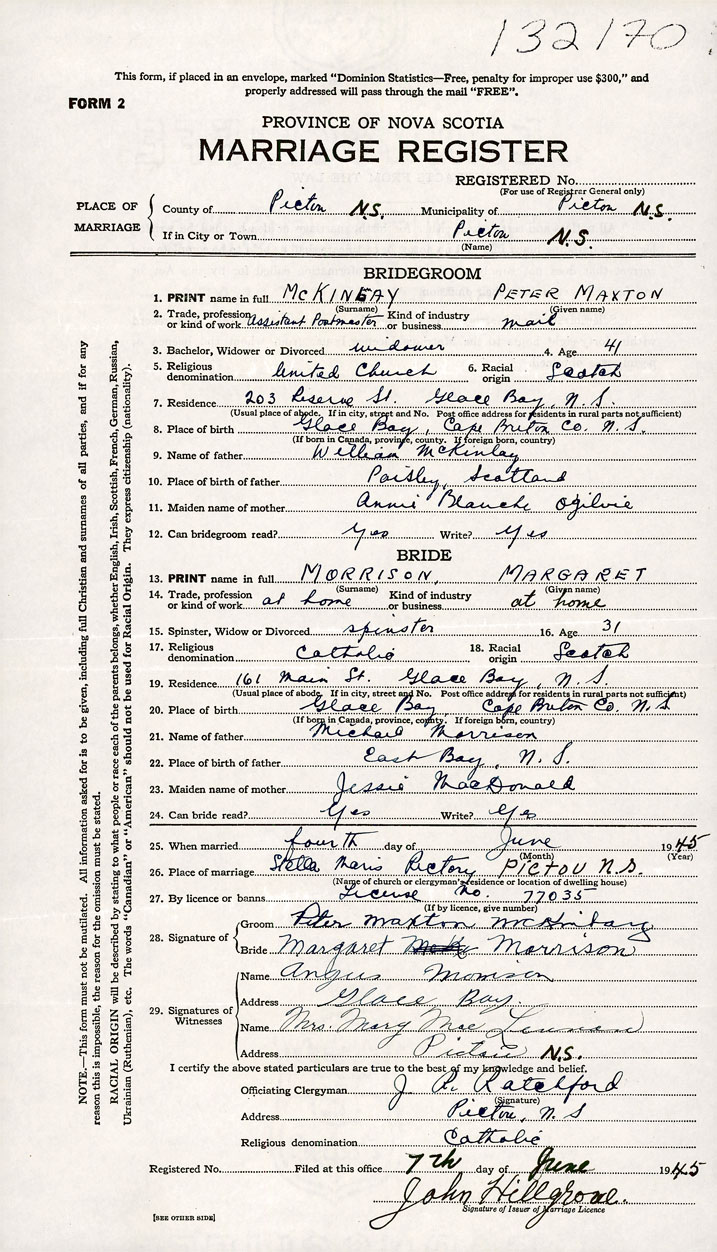 132170
This form, if placed in an envelope, marked "Dominion Statistics—Free, penalty for improper use $300," and
properly addressed will pass through the mail "FREE".
FORM 2
PROVINCE OF NOVA SCOTIA
MARRIAGE REGISTER
REGISTERED No.
(For use of Registrar General only)
PLACE OF MARRIAGE
County of Pictou N.S. Municipality of Pictou N.S.
If in City or Town Pictou N.S.
(Name)
BRIDEGROOM
1. PRINT name in full McKINLAY PETER MAXTON
(Surname) (Given name)
2. Trade, profession or kind of work Assistant Postmaster Kind of industry or business mail
3. Bachelor, Widower or Divorced widower 4. Age 41
5. Religious denomination United Church 6. Racial origin Scotch
7. Residence 203 Reserve St. Glace Bay, N.S.
(Usual place of abode. If in city, street and No. Post office address for residents in rural parts not sufficient)
8. Place of birth Glace Bay, Cape Briton Co. N.S.
(If born in Canada, province, county. If foreign born, country)
9. Name of father William McKinlay
10. Place of birth of father Paisley, Scotland
11. Maiden name of mother Annie Blanche Ogilvie
12. Can bridegroom read? Yes Write? Yes
BRIDE
13. PRINT name in full MORRISON, MARGARET
(Surname) (Given name)
14. Trade, profession or kind of work at home Kind of industry or business at home
15. Spinster, Widow or Divorced spinster 16. Age 31
17. Religious denomination Catholic 18. Racial origin Scotch
19. Residence 161 Main St. Glace Bay, N.S.
(Usual place of abode. If in city, street and No. Post office address for residents in rural parts not sufficient)
20. Place of birth Glace Bay Cape Briton Co. N.S
(If born in Canada, province, county. If foreign born, country)
21. Name of father Michael Morrison
22. Place of birth of father East Bay, N.S.
23. Maiden name of mother Jessie MacDonald
24. Can bride read? Yes Write? Yes
25. When married fourth day of June 1945
(Month) (Year)
26. Place of marriage Stella Maris Rectory PICTOU N.S.
(Name of church or clergyman's residence or location of dwelling house)
27. By licence or banns License No. 77035
(If by licence, give number)
28. Signature of
Groom Peter Maxton McKinlay
Bride Margaret Morrison
29. Signatures of Witnesses
Name Angus Morrison
Address Glace Bay.
Name Mrs. Mary Mac
Address Pictou N.S.
I certify the above stated particulars are true to the best of my knowledge and belief.
Officiating Clergyman J R. Ratchford
(Signature)
Address Pictou, N.S
Religious denomination Catholic
Registered No. Filed at this office 7th day of June 1945
John Hillgrove.
Signature of Issuer of Marriage Licence
[SEE OTHER SIDE]
NOTE.—This form must not be mutilated. All information asked for is to be given, including full Christian and surnames of all parties, and if for any
reason this is impossible, the reason for the omission must be stated.
RACIAL ORIGIN will be described by stating to what people or race each of the parents belongs, whether English, Irish, Scottish, French, German, Russian,
Ukrainian (Ruthenian), etc. The words "Canadian" or "American" should not be used for Racial Origin. They express citizenship (nationality).